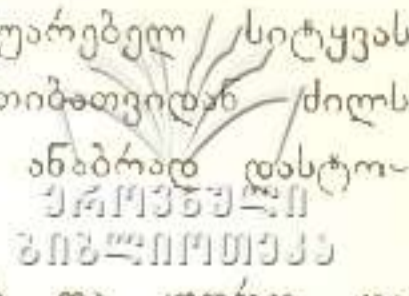 უარებელ სიტყვას
თიბათვიდან ძილს
ანაბრად დასტო-
ეროვნული
ბიბლიოთეკა